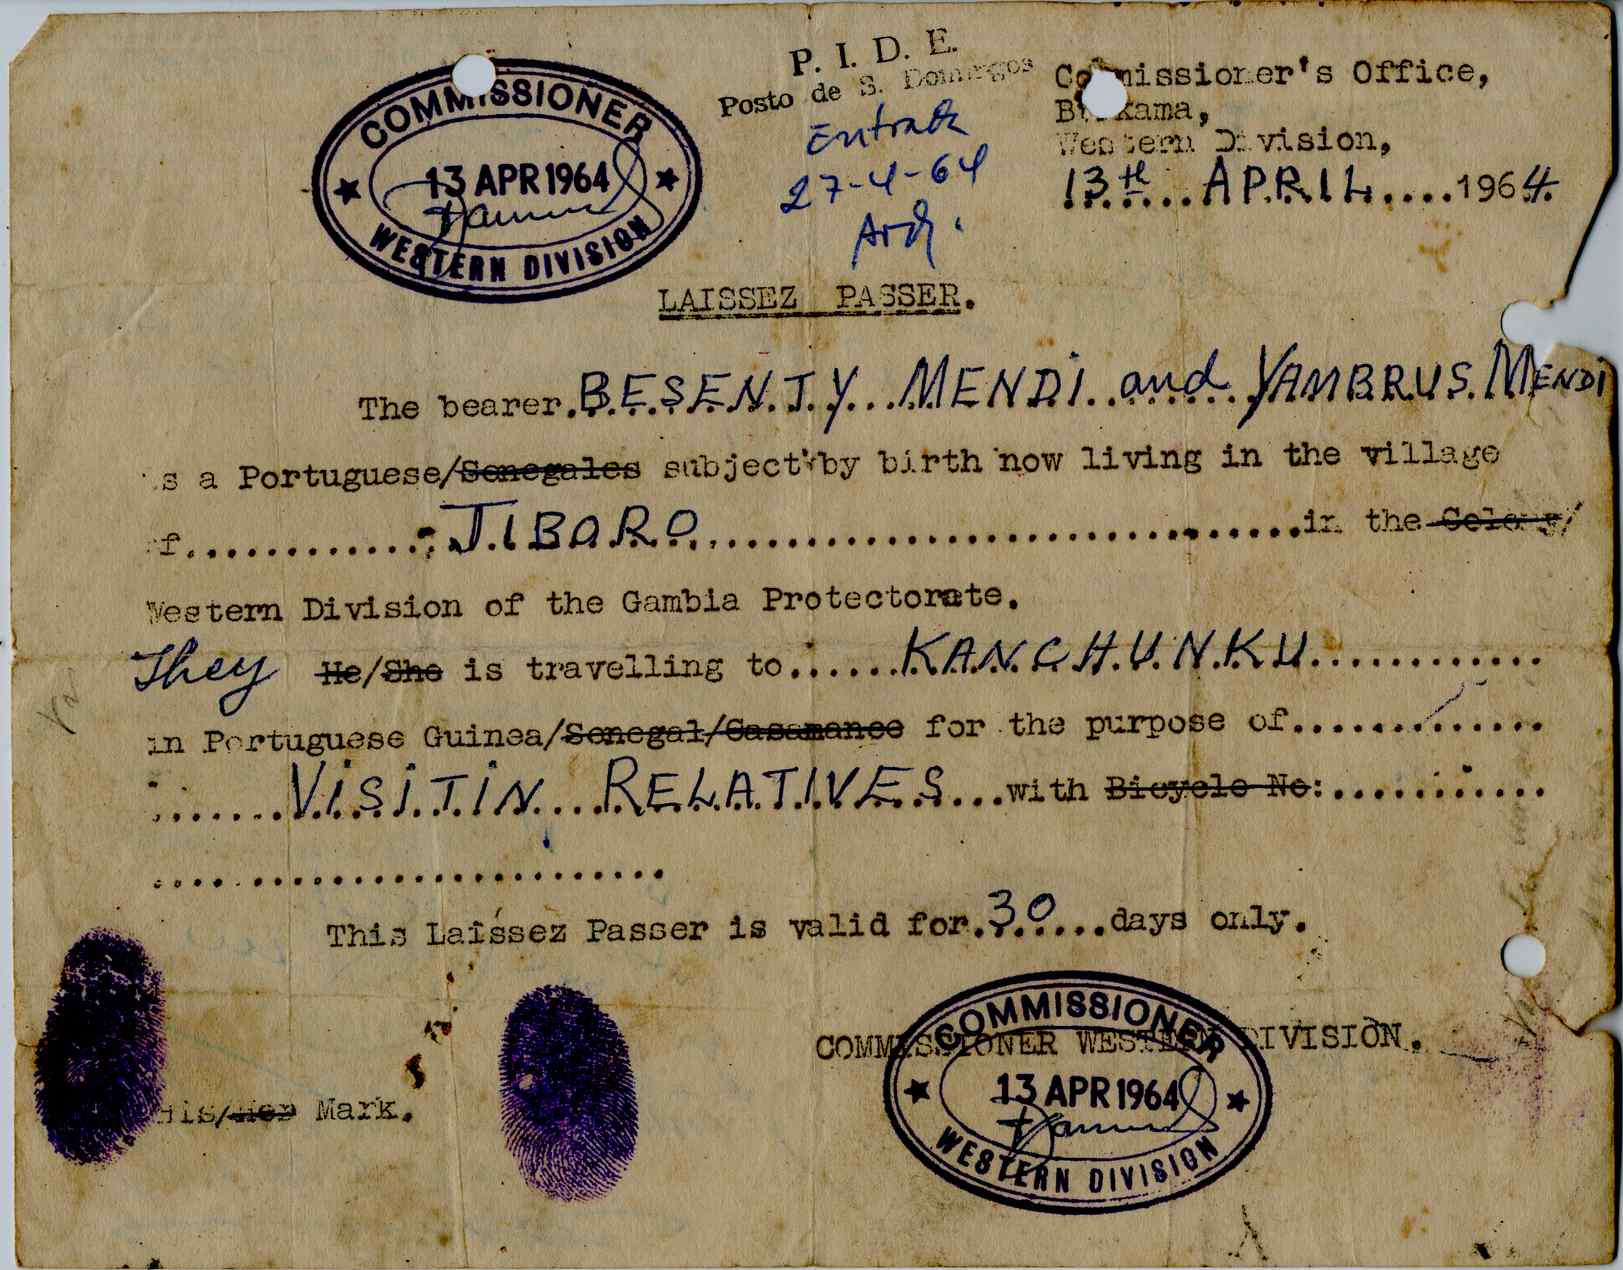 COMMISSIONER
13 APR 1964
WESTERN DIVISION
P. I. D. E.
Posto de S. Domingos
Entrada
27-4-64
Commissioner's Office,
Brikama,
Western Division,
13th... APRIL....1964.
LAISSEZ PASSER.
The bearer.BESENTY...MENDI..and..YAMBRUS.MENDI
is a Portuguese/Senegales subject by birth now living in the village
of..............JIBORO....................................in the Colony/
Western Division of the Gambia Protectorate.
They He/She is travelling to.......KANCHUNKU............
in Portuguese Guinea/Senegal/Casamance for the purpose of.............
........VISITIN...RELATIVES...with Bicycle No:...........
..........................
This Laissez Passer is valid for.30....days only.
COMMISSIONER WESTERN DIVISION.
COMMISSIONER
13 APR 1964
WESTERN DIVISION
His/Her Mark.